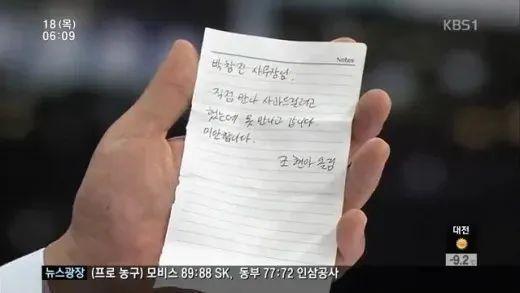 18(목)
06:09
KBS1
Notes
박창진 사무장님.
직접 만나 사과드릴려고
했는데 못 만나고 갑니다.
미안합니다.
조현아 올림
대전
-9.2
뉴스광장 (프로 농구) 모비스 89:88 SK, 동부 77:72 인삼공사